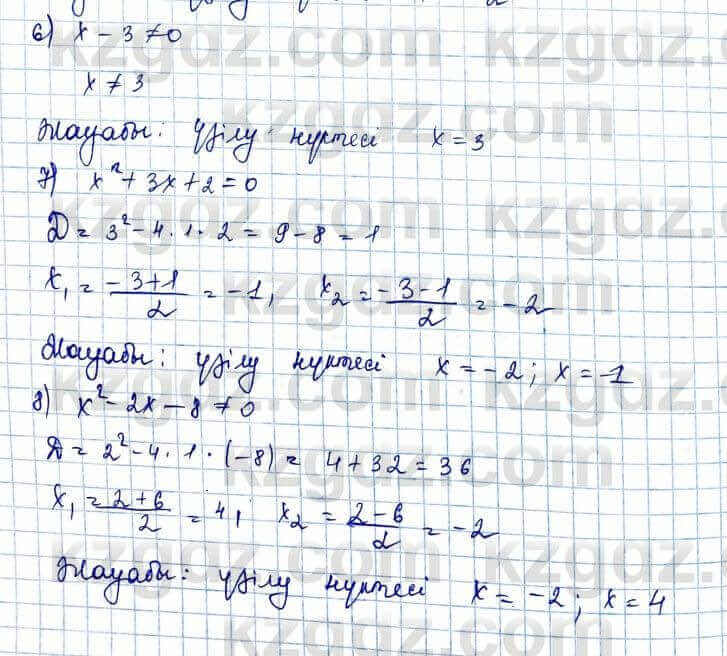 6) x - 3 ≠ 0
x ≠ 3
Жауабы: үзілу нүктесі x = 3
7) x² + 3x + 2 = 0
D = 3² - 4 · 1 · 2 = 9 - 8 = 1
x₁ = (-3+1)/2 = -1, x₂ = (-3-1)/2 = -2
Жауабы: үзілу нүктесі x = -2; x = -1
8) x² - 2x - 8 ≠ 0
D = 2² - 4 · 1 · (-8) = 4 + 32 = 36
x₁ = (2+6)/2 = 4; x₂ = (2-6)/2 = -2
Жауабы: үзілу нүктесі x = -2; x = 4
kzgdz.com